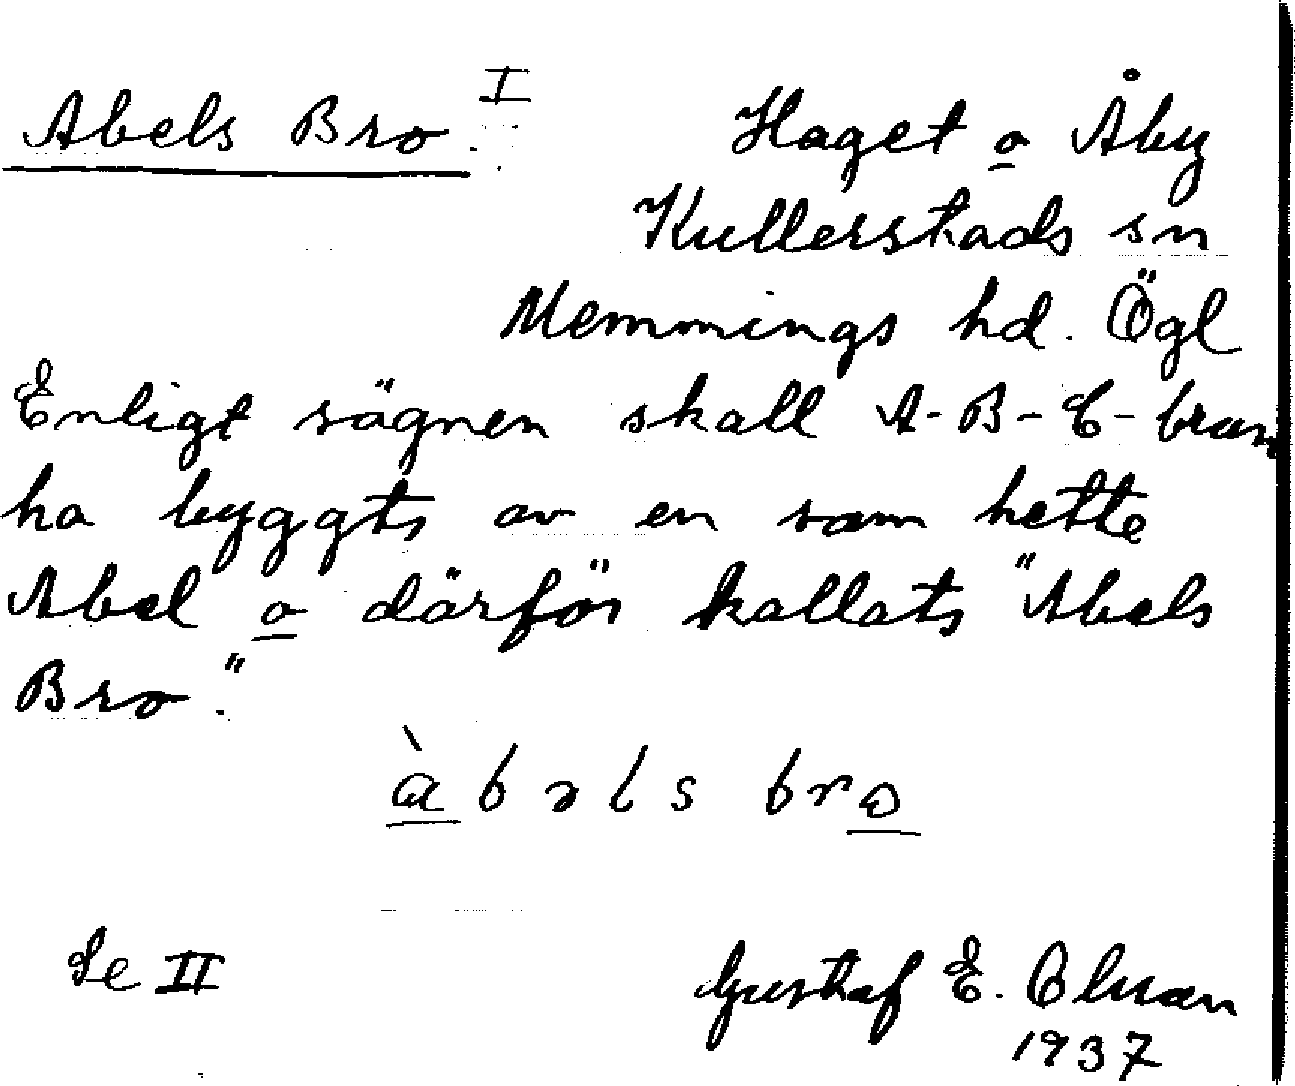 Abels Bro. I Haget o Åby
Kullerstads sn
Memmings hd. Ögl
Enligt sägnen skall A-B-C-bron
ha byggts av en som hette
Abel o därför kallats "Abels
Bro."
àbəls bro
Se II Gustaf E. Olman
1937